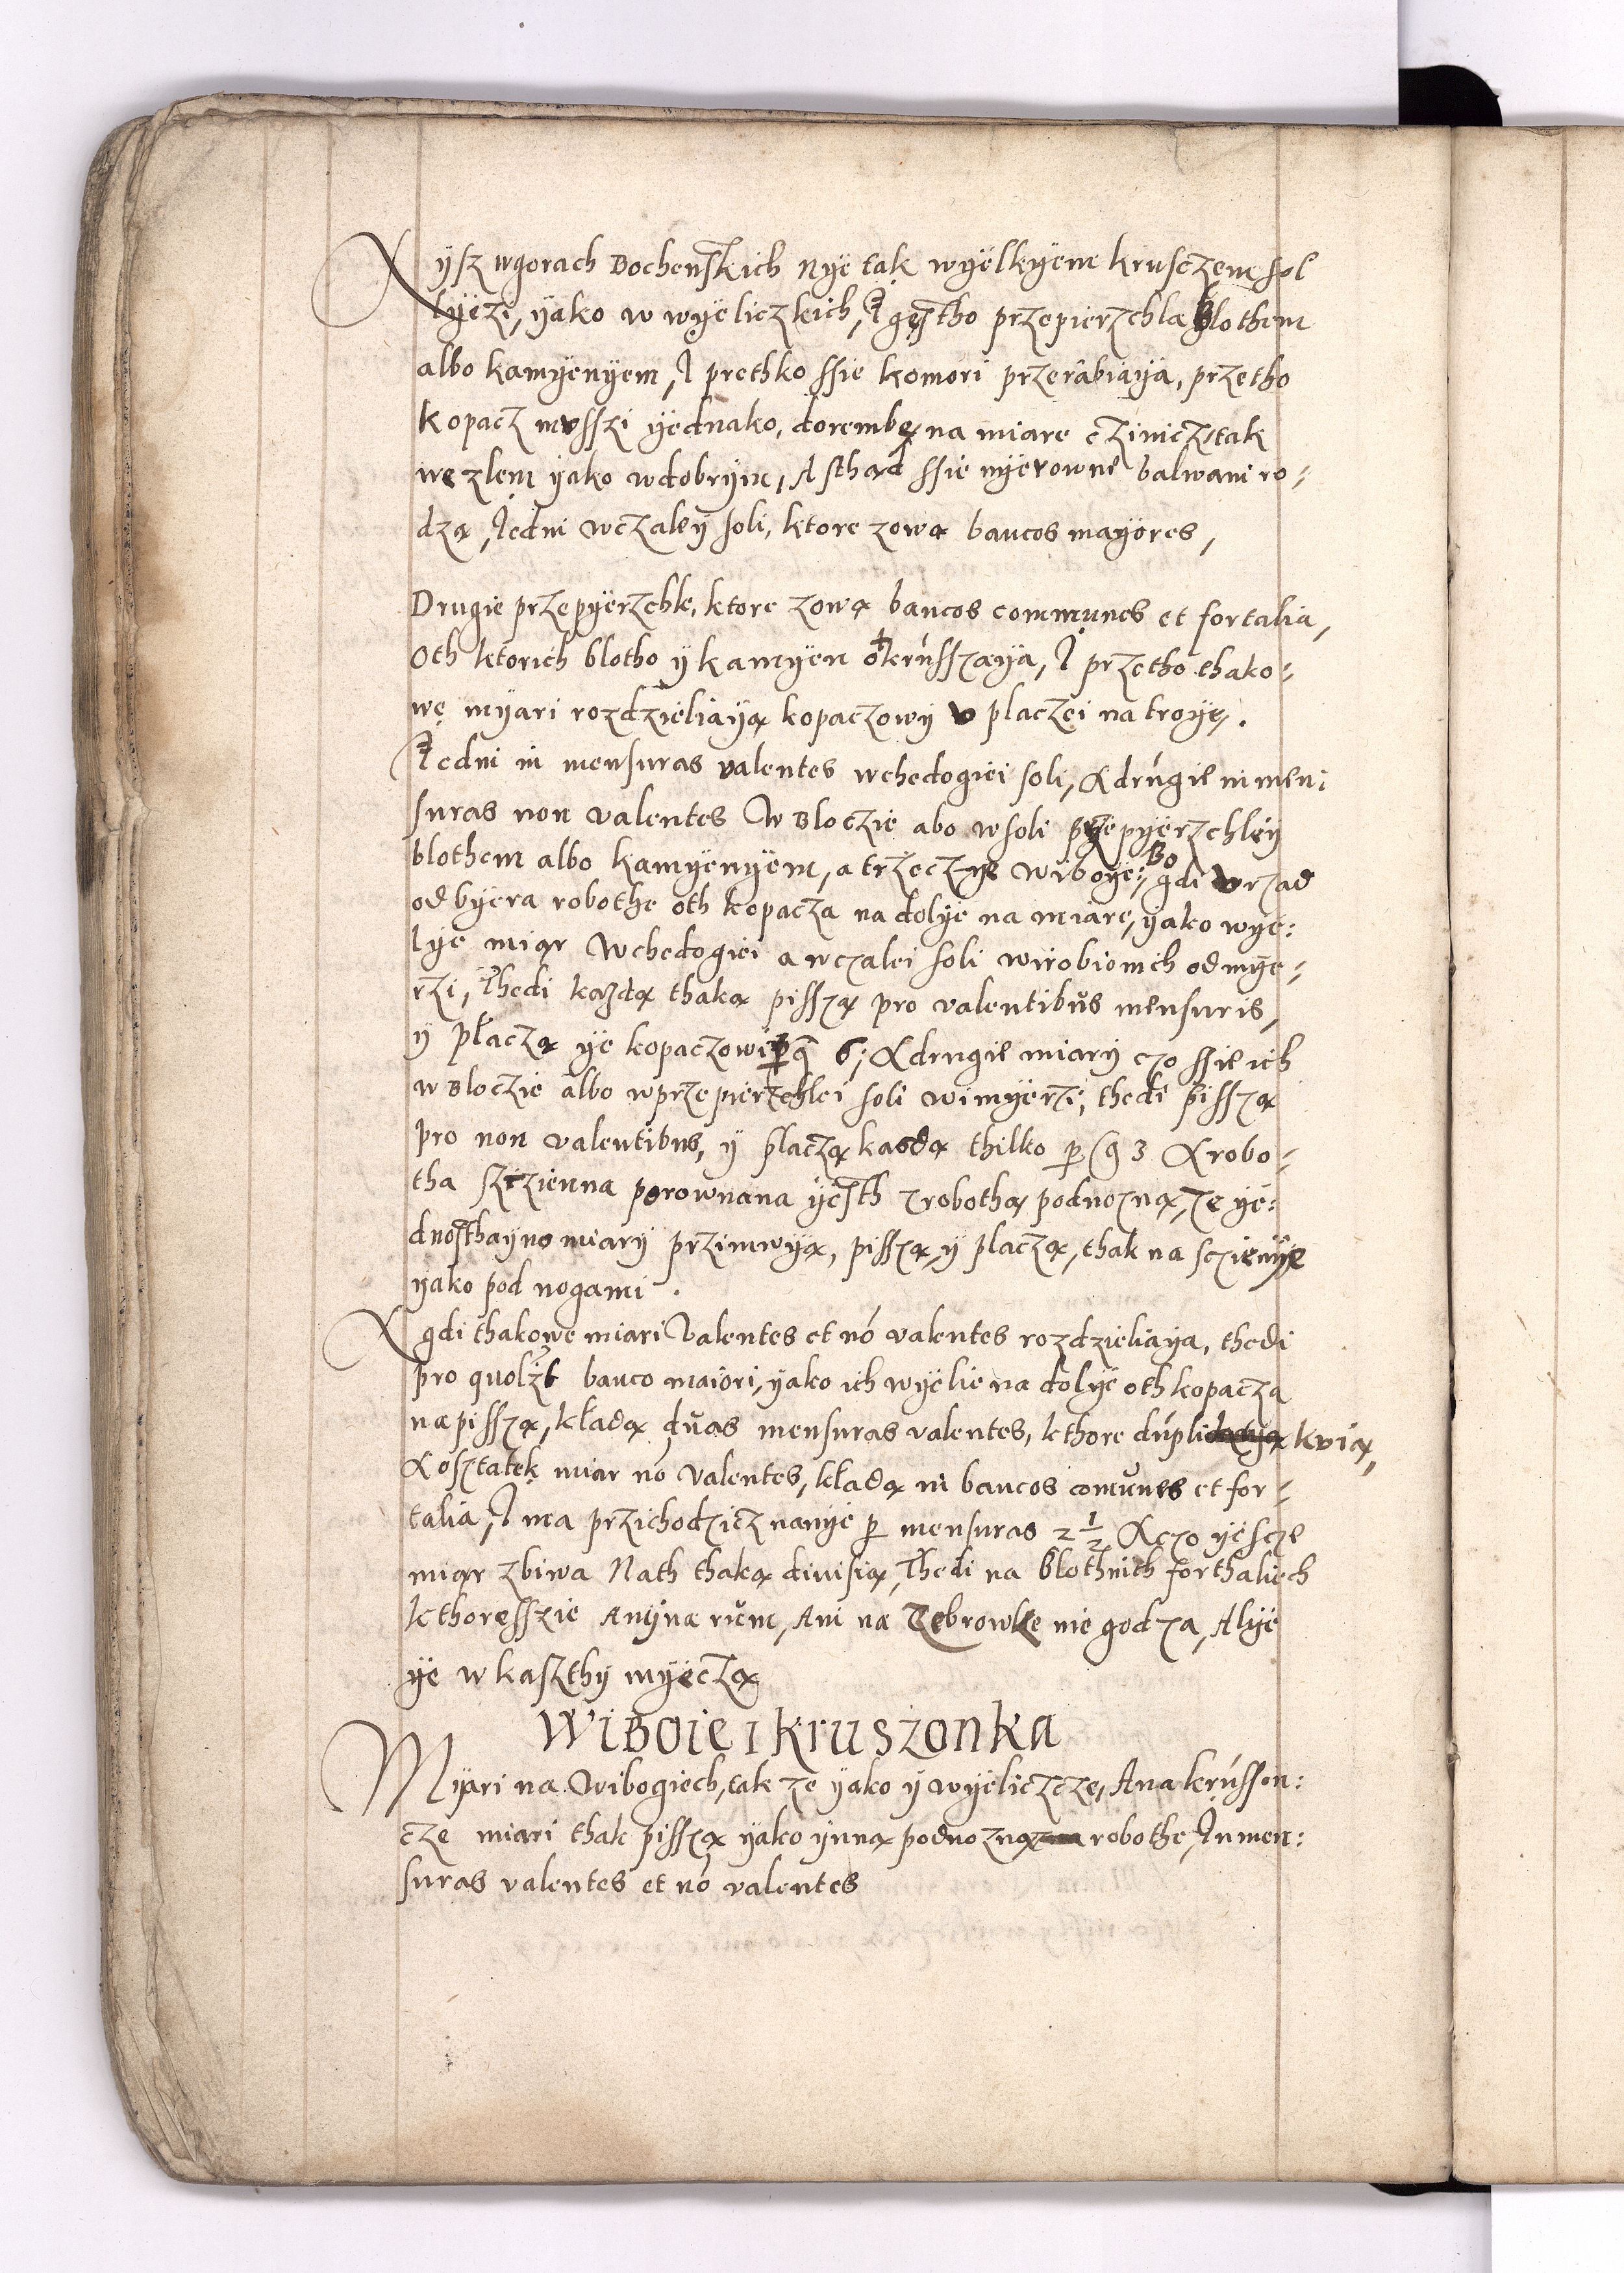 A ÿsz wgorach Bochenskich nÿe tak wÿelkÿem krusczem sol
lyezi, ÿako w wÿeliczkich, I gęstho przepierzchla blothem
albo kamÿenÿem, I prethko ssie komori przerabiaÿa, przetho
kopacz mussi ÿednako, dorembę na miare czinicz, tak
we zlem ÿako wdobrÿm, A sthąd ssie nÿerowne balwani ro-
dzą, Jedni wczalеÿ soli, ktore zową bancos maÿores,
Drugie przepÿerzchle, ktore zową bancos communes et fortalia,
Oth ktorich blotho ÿ kamÿen okrusszaÿa, I przetho thako-
we mÿari rozdzieliaÿą kopaczowÿ v placzei na troÿe.
Jedni in mensuras valentes wchedogiei soli, A drugie in men:
suras non valentes w Bloczie abo wsoli przepÿerzchlеÿ
blothem albo kamÿenÿem, a trzeczÿe wiboÿe, Bo gdi vrzad
odbÿera robothe oth kopacza na dolÿe na miare, ÿako wÿe:
lÿe miąr wchedogiei a wczalei soli wirobionich odmÿe-
rzi, Thedi każdą thaką pisszą pro valentibus mensuris,
ÿ płaczą ÿe kopaczowi per g 6; A drugie miarÿ czo ssie ich
w Bloczie albo wprzepierzchlei soli wimÿerzi, thedi pisszą
pro non valentibus, ÿ placzą kasdą thilko per g 3 A robo-
tha sczienna porownana ÿesth zrobothą podnozną, ze ÿe:
dnosthaÿno miarÿ przimwÿą, pisszą, ÿ placzą, thak na sczienÿe
ÿako pod nogami.
A gdi thakowe miari valentes et nō valentes rozdzieliaÿa, thedi
pro quolzt banco maiori, ÿako ich wÿelie na dolÿe oth kopacza
napisszą, kładą duas mensuras valentes, kthore dupli kvią,
A osztatek miar nō valentes, kładą in bancos comunes et for-
talia, I ma przichodzicz nanÿe per mensuras 2 1/2 A czo ÿescze
miąr zbiwa Nath thaką diuisią, Thedi na blothnich forthaliech
kthoresszie Anÿna rum, Ani na Zebrowke nie godza, Alÿe
ÿe w kaszthÿ mÿeczą
WIBOIE I KRUSZONKA
Mÿari na wibogiech, tak ze ÿako ÿ wÿeliczcze, A na krusson:
cze miari thak pisszą ÿako ÿnną podnozną robothe, In men:
suras valentes et nō valentes